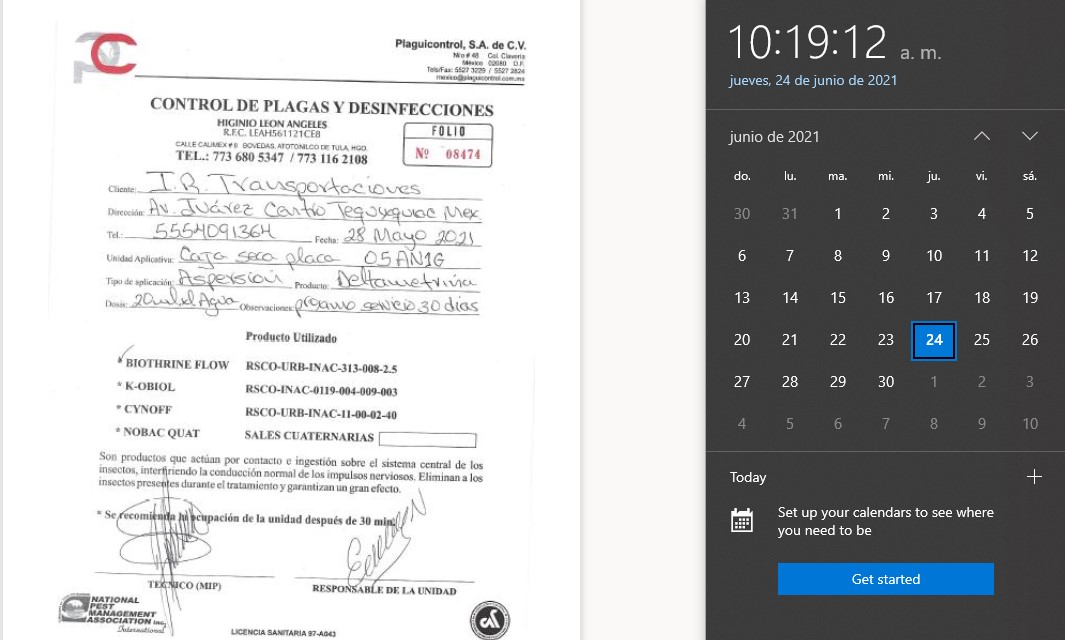 Plaguicontrol, S.A. de C.V.
N/o # 48 Col. Clavería
México 02080 D.F.
Tels/Fax: 5527 3229 / 5527 2824
mexico@plaguicontrol.com.mx
CONTROL DE PLAGAS Y DESINFECCIONES
HIGINIO LEON ANGELES
R.F.C. LEAH561121CE8
CALLE CALIMEX # 8 BOVEDAS, ATOTONILCO DE TULA, HGO.
TEL.: 773 680 5347 / 773 116 2108
FOLIO
Nº 08474
Cliente: I.R. Transportaciones
Dirección: Av. Juárez Centro Tequixquiac Mex
Tel.: 5554091364 Fecha: 28 Mayo 2021
Unidad Aplicativa: Caja seca placa 05AN1G
Tipo de aplicación: Aspersión Producto: Deltametrina
Dosis: 20ml.xl Agua Observaciones: proximo servicio 30 dias
Producto Utilizado
* BIOTHRINE FLOW RSCO-URB-INAC-313-008-2.5
* K-OBIOL RSCO-INAC-0119-004-009-003
* CYNOFF RSCO-URB-INAC-11-00-02-40
* NOBAC QUAT SALES CUATERNARIAS
Son productos que actúan por contacto e ingestión sobre el sistema central de los
insectos, interfiriendo la conducción normal de los impulsos nerviosos. Eliminan a los
insectos presentes durante el tratamiento y garantizan un gran efecto.
* Se recomienda la ocupación de la unidad después de 30 min.
TECNICO (MIP) RESPONSABLE DE LA UNIDAD
NATIONAL
PEST
MANAGEMENT
ASSOCIATION Inc.
International
LICENCIA SANITARIA 97-A043
10:19:12 a. m.
jueves, 24 de junio de 2021
junio de 2021
do. lu. ma. mi. ju. vi. sá.
30 31 1 2 3 4 5
6 7 8 9 10 11 12
13 14 15 16 17 18 19
20 21 22 23 24 25 26
27 28 29 30 1 2 3
4 5 6 7 8 9 10
Today
Set up your calendars to see where
you need to be
Get started